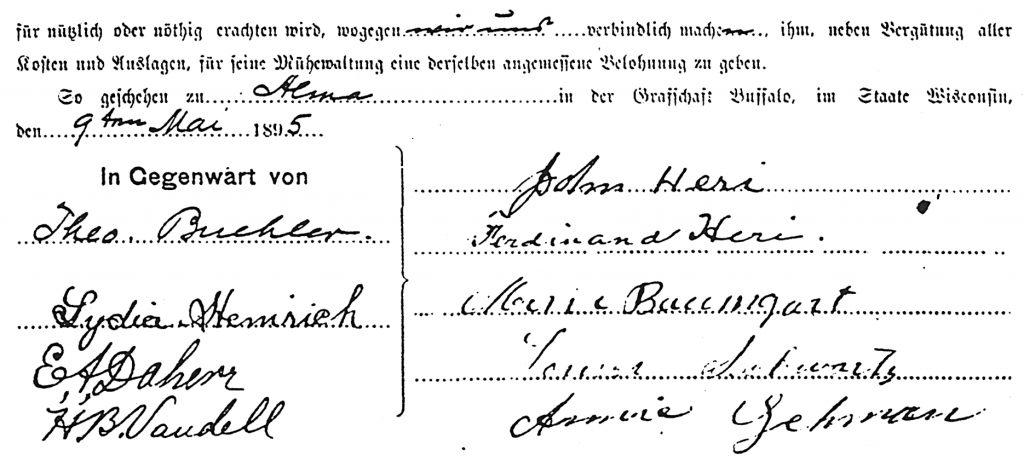 für nützlich oder nöthig erachten wird, wogegen wir uns verbindlich machen, ihm, neben Vergütung aller
Kosten und Auslagen, für seine Mühewaltung eine derselben angemessene Belohnung zu geben.
So geschehen zu Alma in der Grafschaft Buffalo, im Staate Wisconsin,
den 9ten Mai 1895
In Gegenwart von
John Heri
Theo. Buehler.
Ferdinand Heri.
Lydia Hemrich
Marie Baumgart
E. A. Daherr
H. B. Vandell
Annie Gehman